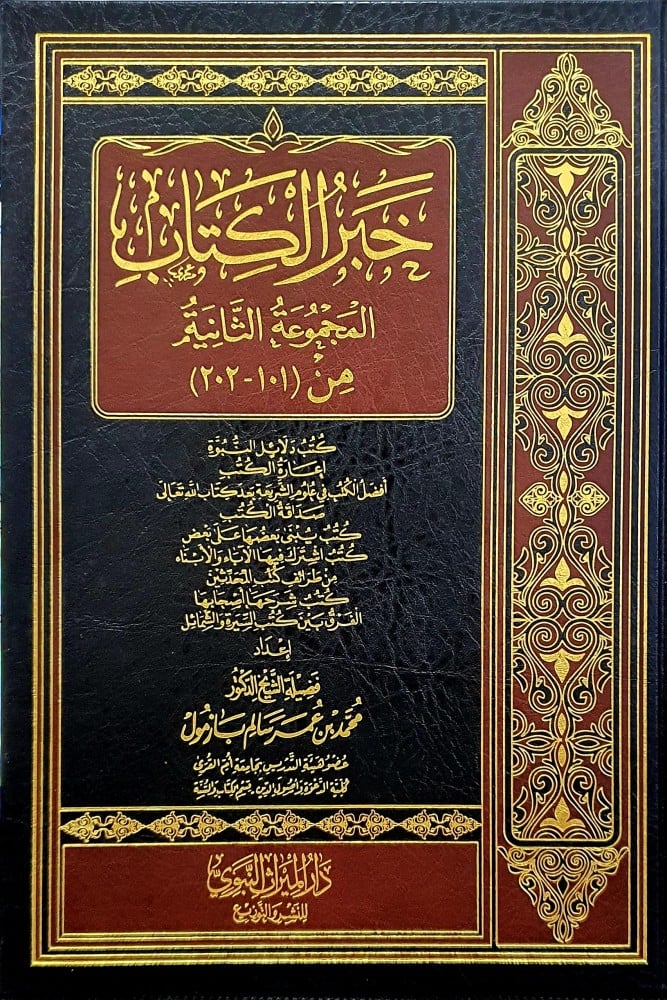 خَبَرُ الْكِتَابِ
الْمَجْمُوعَةُ الثَّانِيَةُ
مِنْ (١٠١-٢٠٢)
كُتُبُ دَلَائِلِ النُّبُوَّةِ
إِعَارَةُ الْكُتُبِ
أَفْضَلُ الْكُتُبِ فِي عُلُومِ الشَّرِيعَةِ بَعْدَ كِتَابِ اللهِ تَعَالَى
صَدَاقَةُ الْكُتُبِ
كُتُبٌ يَنْبَنِي بَعْضُهَا عَلَى بَعْضٍ
كُتُبٌ اشْتَرَكَ فِيهَا الْآبَاءُ وَالْأَبْنَاءُ
مِنْ طَرَائِفِ كُتُبِ الْمُحَدِّثِينَ
كُتُبٌ شَرَحَهَا أَصْحَابُهَا
الْفَرْقُ بَيْنَ كُتُبِ السِّيرَةِ وَالشَّمَائِلِ
إِعْدَادُ
فَضِيلَةِ الشَّيْخِ الدُّكْتُورِ
مُحَمَّدِ بْنِ عُمَرَ سَالِم بَازْمُول
عُضْوِ هَيْئَةِ التَّدْرِيسِ بِجَامِعَةِ أُمِّ الْقُرَى
كُلِّيَّةِ الدَّعْوَةِ وَأُصُولِ الدِّينِ - قِسْمِ الْكِتَابِ وَالسُّنَّةِ
دَارُ الْمِيرَاثِ النَّبَوِيِّ
لِلنَّشْرِ وَالتَّوْزِيعِ